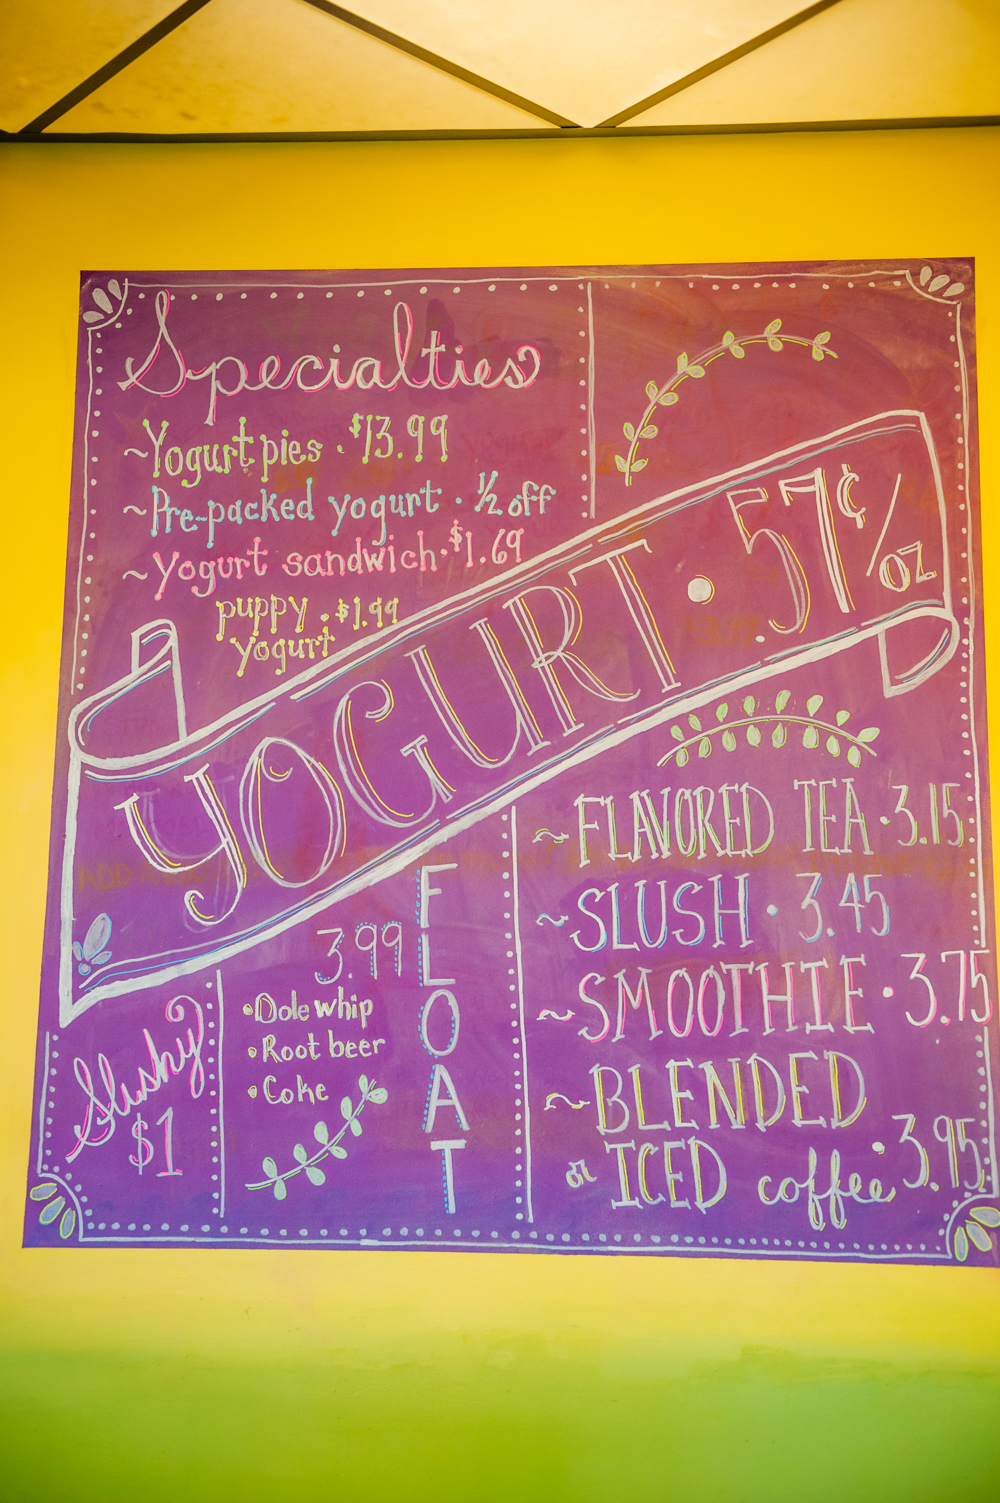 Specialties
~Yogurt pies · $13.99
~Pre-packed yogurt · 1/2 off
~Yogurt sandwich · $1.69
puppy · $1.99
yogurt
YOGURT · .57¢/oz
FLOAT
3.99
• Dole whip
• Root beer
• Coke
Slushy
$1
~FLAVORED TEA · 3.15
~SLUSH · 3.45
~SMOOTHIE · 3.75
~BLENDED
or ICED coffee · 3.95